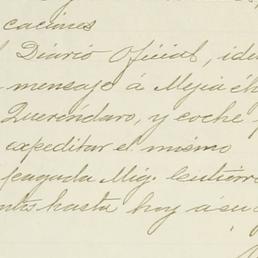 caciones
Diario Oficial, ide
mensaje á Mejia é h
Queréndaro, y coche
expeditar el mismo
pagada Mig. Gutierr
hasta hoy á su